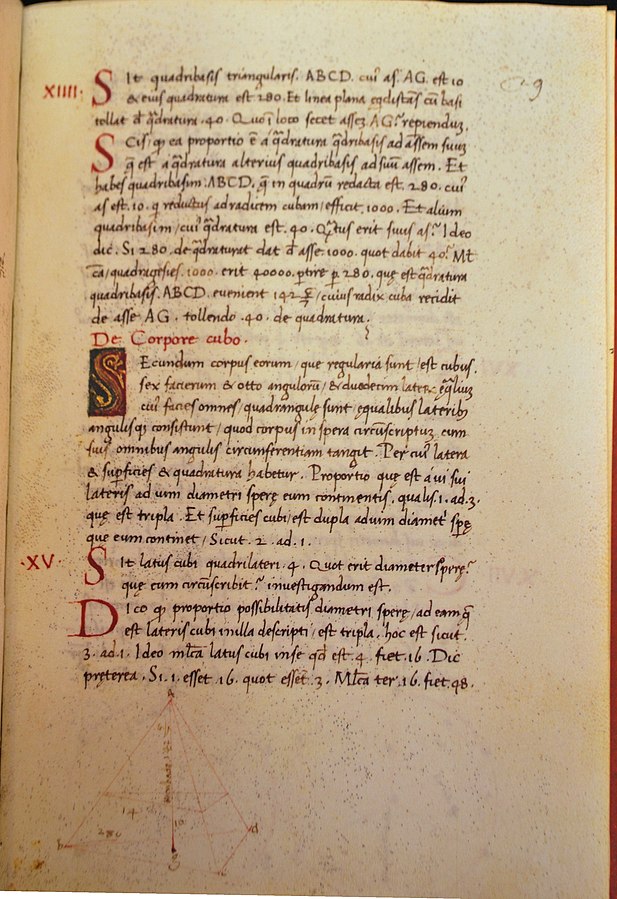 9
XIIII.
Sit quadribasis triangularis. ABCD. cui' as. AG. est 10
& eius quadratura est 280. Et linea plana eqdistās cū basi
tollat đ qdratura. 40. Quo loco secet assez AG. repienduz.
Scis, qp ea proportio ē a qdratura qdribasis ad assem suuz
q est a qdratura alterius quadribasis ad suum assem. Et
habes quadribasim: ABCD. q in quadrū redacta est. 280. cui'
as est. 10. q reductus ad radicem cubam/efficit. 1000. Et alium
quadribasim/cui' qdratura est. 40. Qtus erit suus as. Ideo
dic. Si 280. de qdraturat dat đ asse 1000. quot dabit 40. Mlt
ca/quadragesies. 1000. erit 40000. ptire p 280. quę est qdratura
quadribasis. ABCD. evenient 142 6/7/cuius radix cuba recidit
de asse AG. tollendo .40. de quadratura.
De Corpore cubo.
Secundum corpus eorum/que regularia sunt/est cubus.
sex facierum & otto angulorū/& duodecim later. eqliuz
cui' facies omnes/quadrangulę sunt/equalibus laterib
angulisq consistunt/quod corpus in spera circūscriptuz cum
suis omnibus angulis circumferentiam tangit. Per cui' latera
& supficies & quadratura habetur. Proportio quę est a vi sui
lateris ad vim diametri sperę eum continentis, qualis .1. ad .3.
quę est tripla. Et supficies cubi/est dupla ad vim diamet' spę
que eum continet/Sicut .2. ad .1.
.XV.
Sit latus cubi quadrilateri .4. Quot erit diameter sperę
quę eum circūscribit investigandum est.
Dico qp proportio possibilitatis diametri sperę/ad eam q
est lateris cubi in illa descripti/est tripla, hoc est sicut
3. ad .1. Ideo mlca latus cubi in se qđ est .4. fiet .16. Dic
pręterea. Si .1. esset .16. quot esset .3. Mlca ter .16. fiet .48.
A
14
280
10
b
d